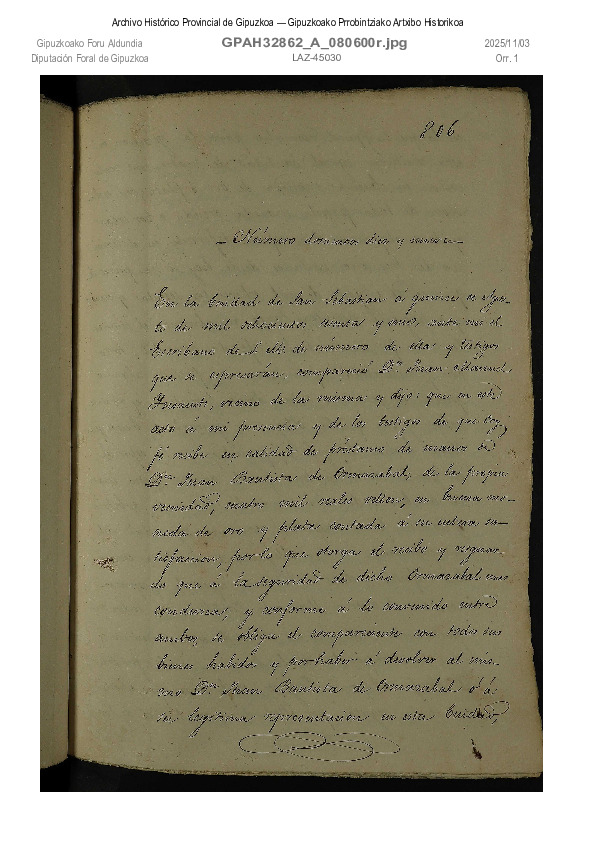 Archivo Histórico Provincial de Gipuzkoa — Gipuzkoako Prrobintziako Artxibo Historikoa
Gipuzkoako Foru Aldundia
Diputación Foral de Gipuzkoa
GPAH32862_A_080600r.jpg
LAZ-45030
2025/11/03
Orr. 1
806
Número doscientos diez y nueve
En la Ciudad de San Sebastian á quince de Agos-
to de mil ochocientos y nueve, ante mi el
Escribano de S. M. de número de ella y testigos
que se espresarán, compareció Dn. Juan Manuel
vecino de la misma y dijo: que en este
acto á mi presencia y de los testigos de que doy
fé recibe en calidad de préstamo de mano de
Dn. Juan Bautista de de la propia
vecindad, cuatro mil reales vellon, en buena mo-
neda de oro y plata contada á su entera sa-
tisfaccion, por lo que otorga el recibo y resguar-
do que á la seguridad de dicho
conduzca, y conforme á lo convenido entre
ambos, se obliga el compareciente con todos sus
bienes habidos y por haber á devolver al mis-
mo Dn. Juan Bautista de ó á
su legítima representacion en esta Ciudad,